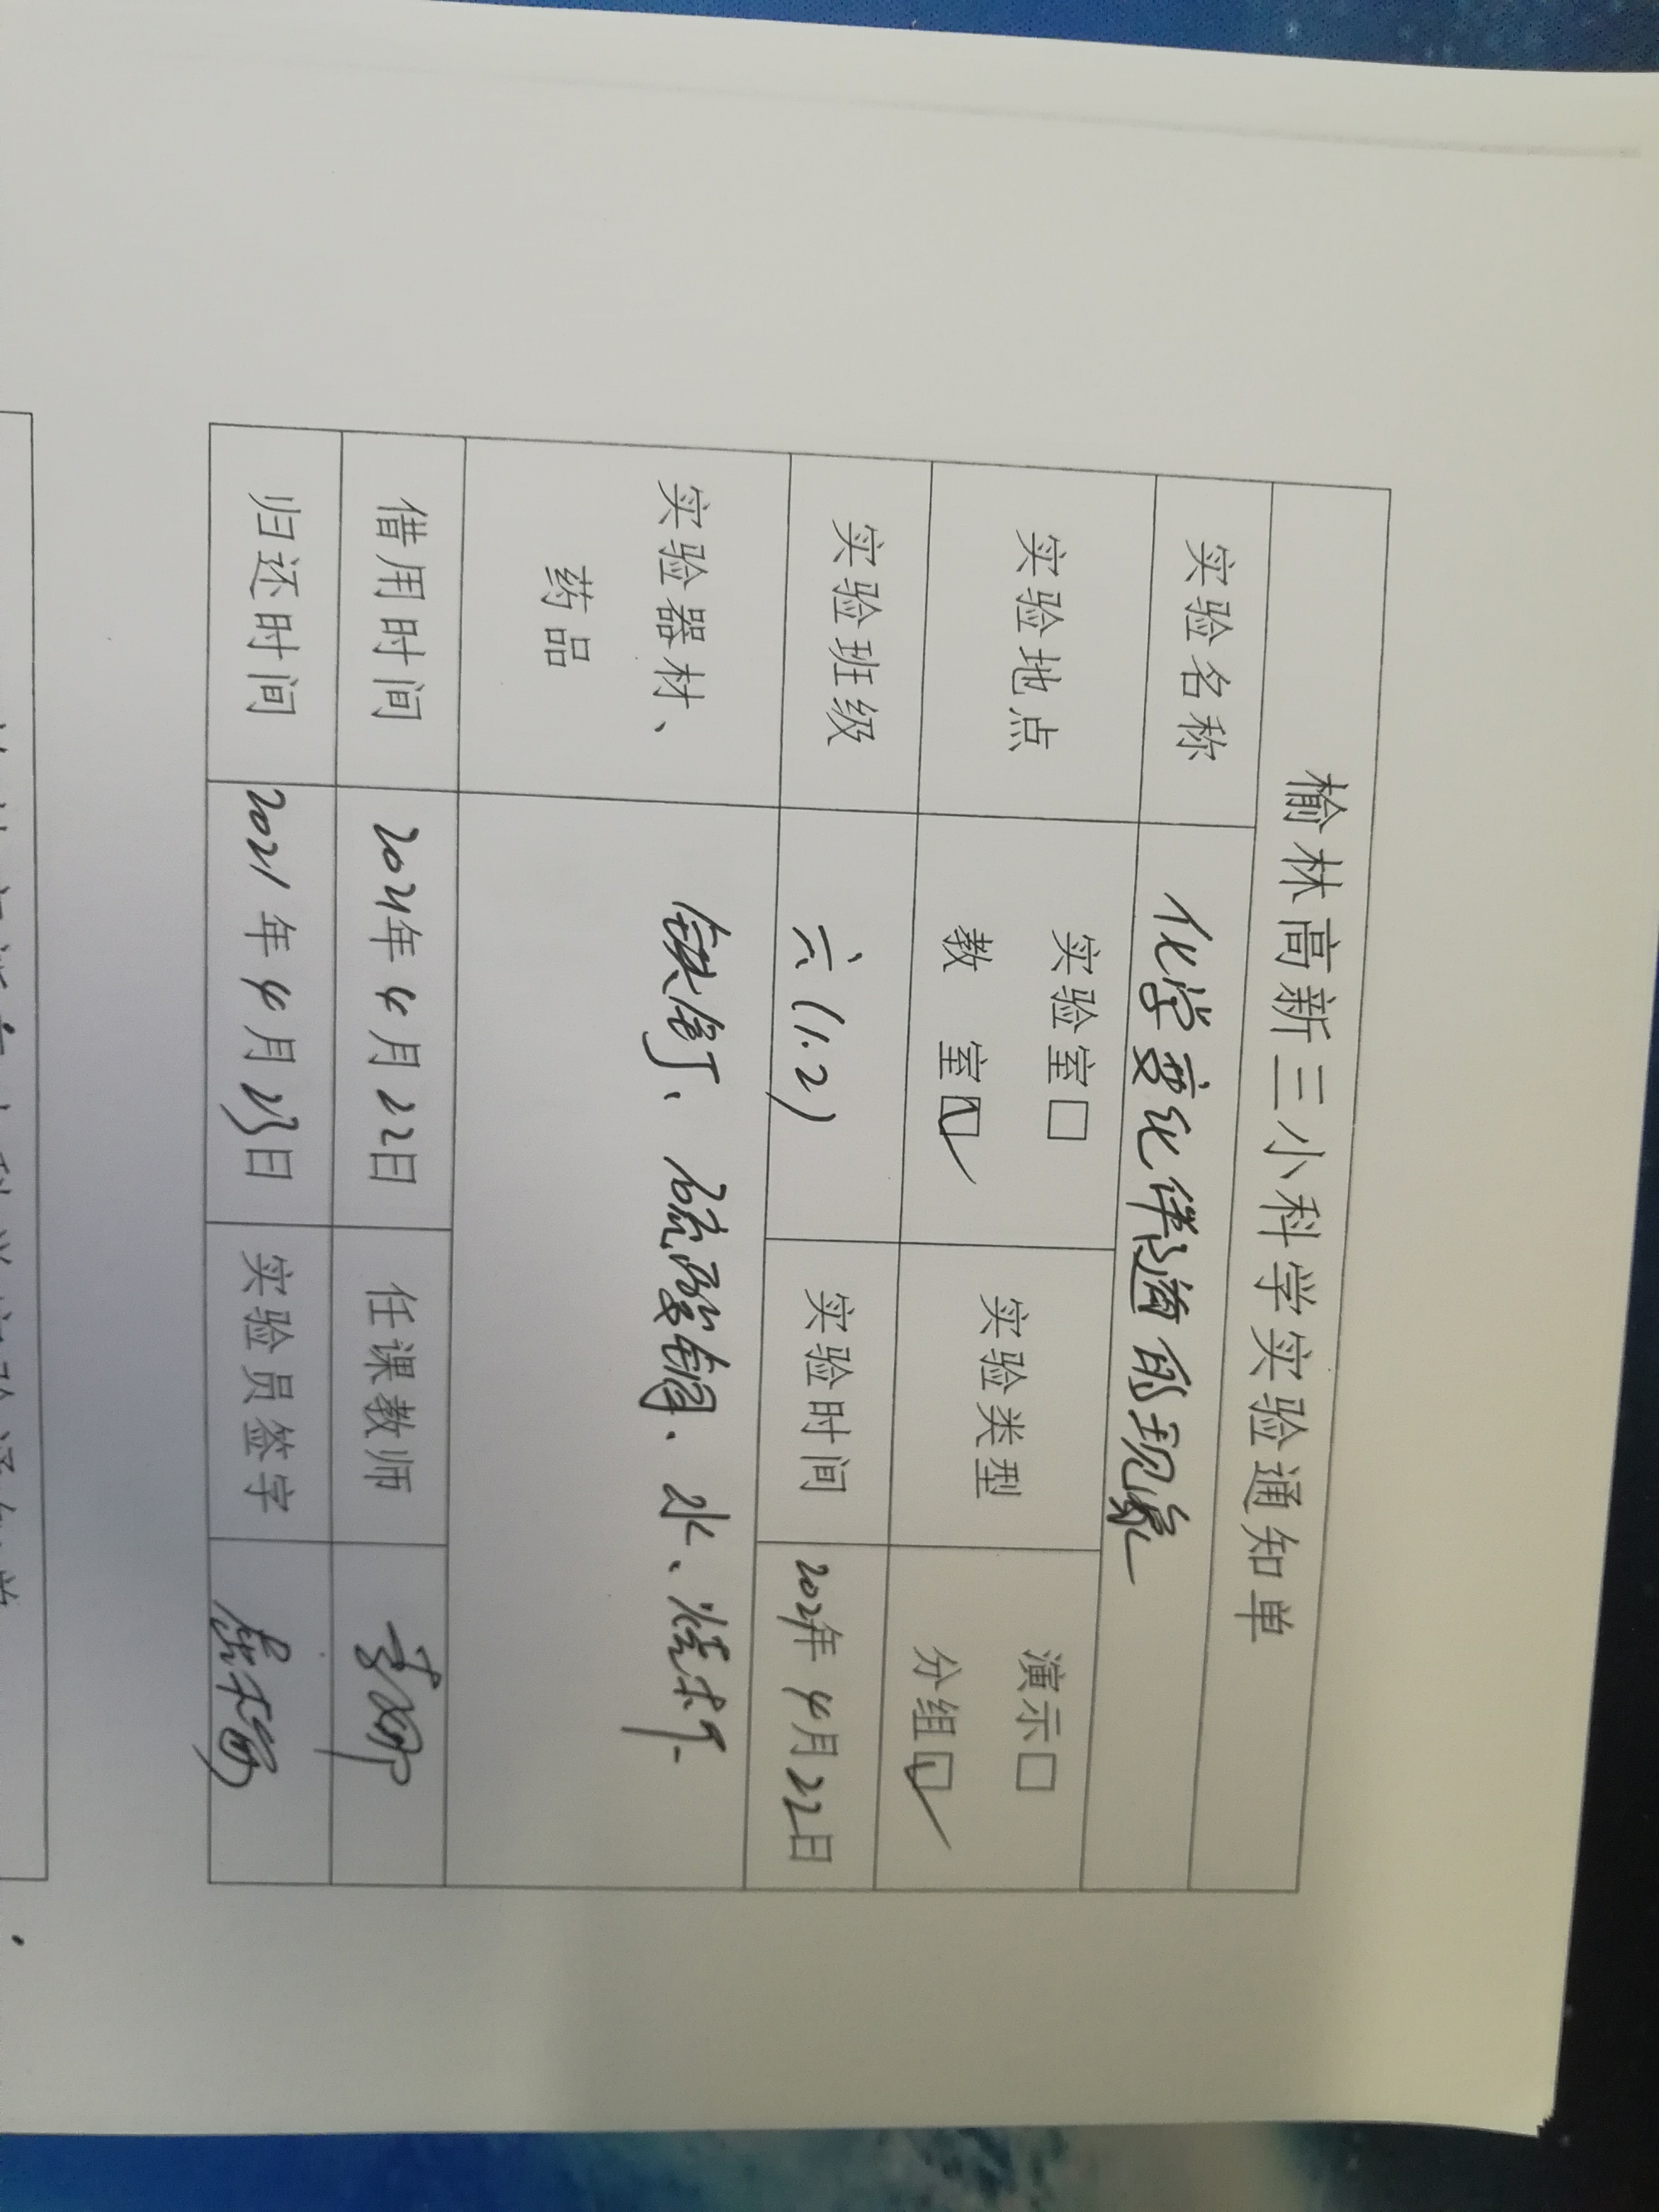 榆林高新三小科学实验通知单
实验名称 化学变化伴随的现象
实验地点 实验室□ 教 室☑ 实验类型 演示□ 分组☑
实验班级 六(1.2) 实验时间 2021年4月22日
实验器材、药品 铁钉、硫酸铜、水、烧杯
借用时间 2021年4月22日 任课教师
归还时间 2021年4月23日 实验员签字